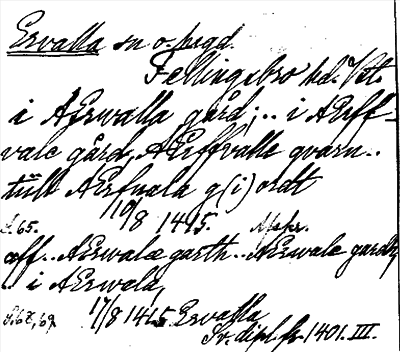 Ervalla sn o. pegd.
Fellingsbro hd. Vstm.
i AErwalla gård; .. i AErff-
vale gård, AErffvalle qvarn..
tiill AErfuala g(i)ordt
s.65. 10/8 1415. Afskr.
aff.. AErwalæ garth.. AErwale gardh
.. i AErwala,
s.68, 69. 17/8 1415. Ervalla,
Sv. dipl. fr. 1401. III.